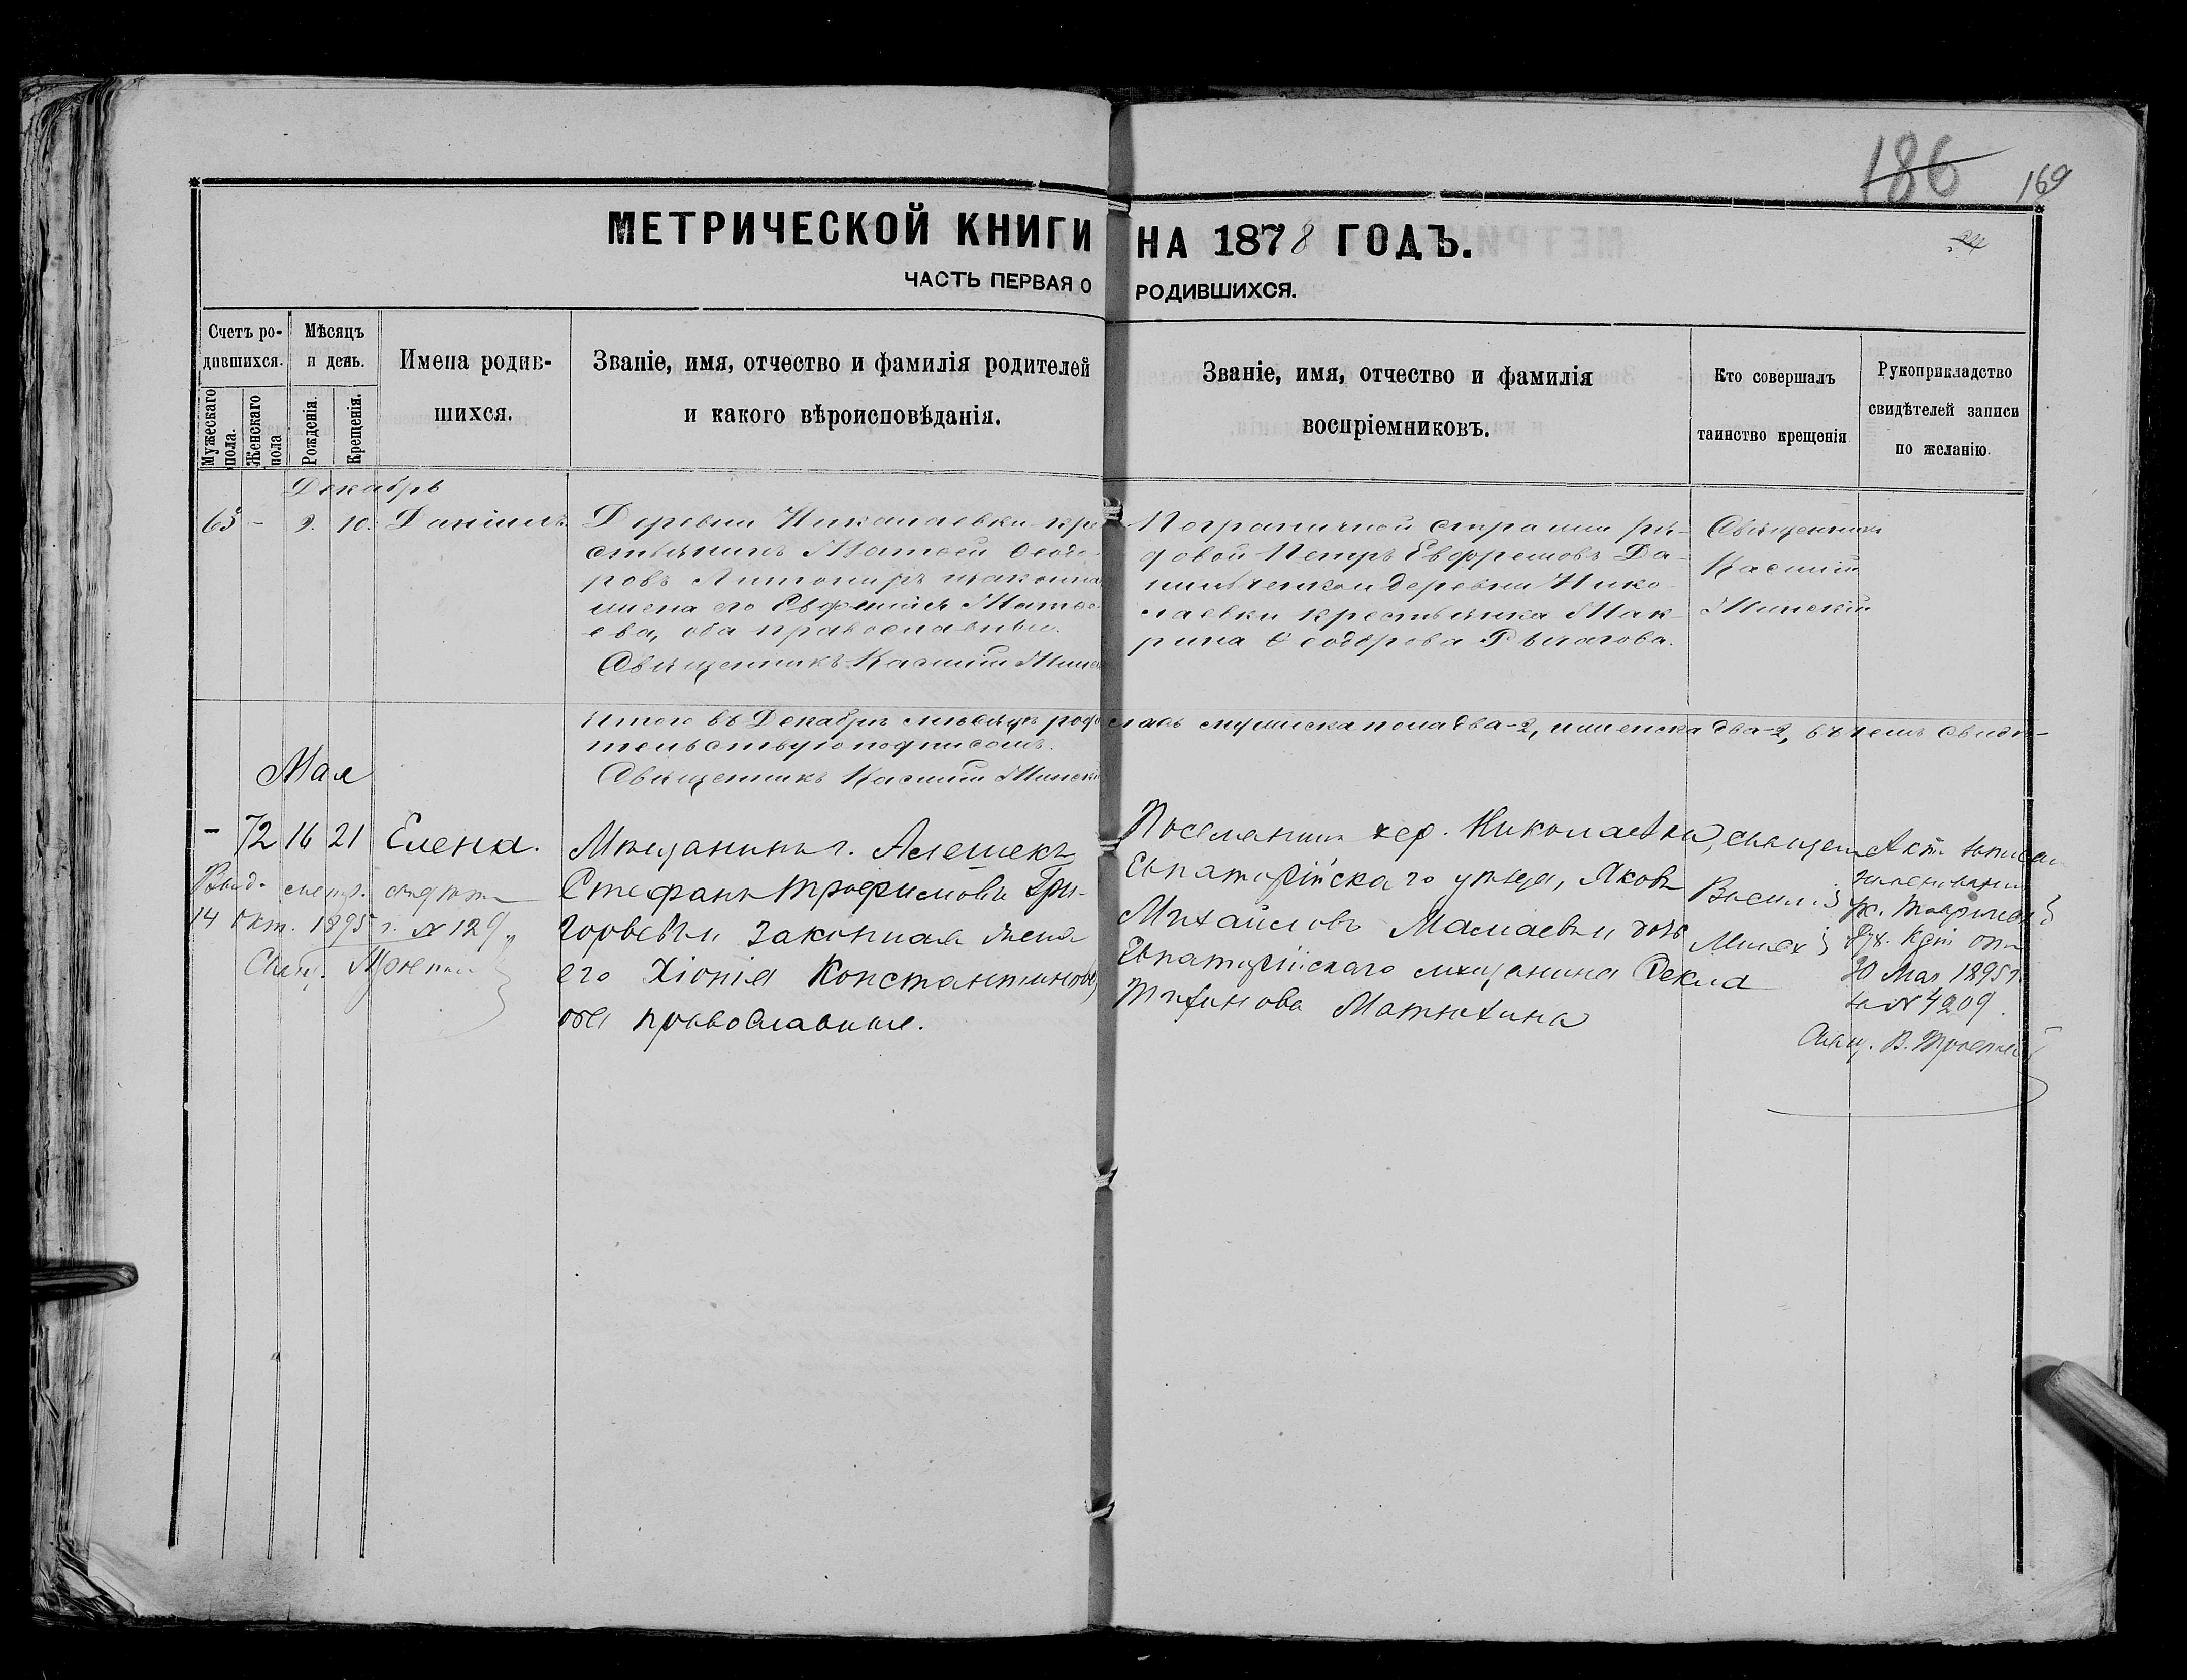 186 169
МЕТРИЧЕСКОЙ КНИГИ НА 1878 ГОДЪ.
ЧАСТЬ ПЕРВАЯ О РОДИВШИХСЯ.
Счетъ ро-
дившихся.
Мужескаго пола.
Женскаго пола
Мѣсяцъ
и день.
Рожденія.
Крещенія.
Имена родив-
шихся.
Званіе, имя, отчество и фамилія родителей
и какого вѣроисповѣданія.
Званіе, имя, отчество и фамилія
воспріемниковъ.
Кто совершалъ
таинство крещенія
Рукоприкладство
свидѣтелей записи
по желанію.
Декабрь
63 - 9. 10. Даніилъ.
Деревни Николаевки кре
стьянинъ Матвей Ѳеодо-
ровъ и законна
жена его Евфимія Матвѣ-
ева, оба православные.
Священникъ Касіий Минск
Пограничной стражи ря-
довой Петръ Евфремовъ Да-
и деревни Нико-
лаевки крестьянка Мак-
рина Ѳеодорова
Священникъ
Касіий
Минскій
Итого въ Декабрѣ мѣсяцѣ роди лось мужеска пола два-2, и женска два-2, въ чемъ свидѣ-
тельствую подписомъ.
Священникъ Касіий Минскі
Мая
- 72 16 21 Елена.
Выд.
14 Окт. 1895 г. № 129
Свящ.
Мѣщанинъ г. Алешекъ
Стефанъ Трофимовъ Гри-
горьевъ и законная жена
его Хіонія Константинова,
оба православные.
Поселянинъ дер. Николаевки,
Евпаторійскаго уѣзда, Яковъ
Михайловъ Малаевъ и дочь
Евпаторійскаго мѣщанина Ѳекла
Матюхина
священ
Васил.
Актъ записан
дух. Кон от
20 Мая 1895 г.
за № 4209.
Свящ. В.